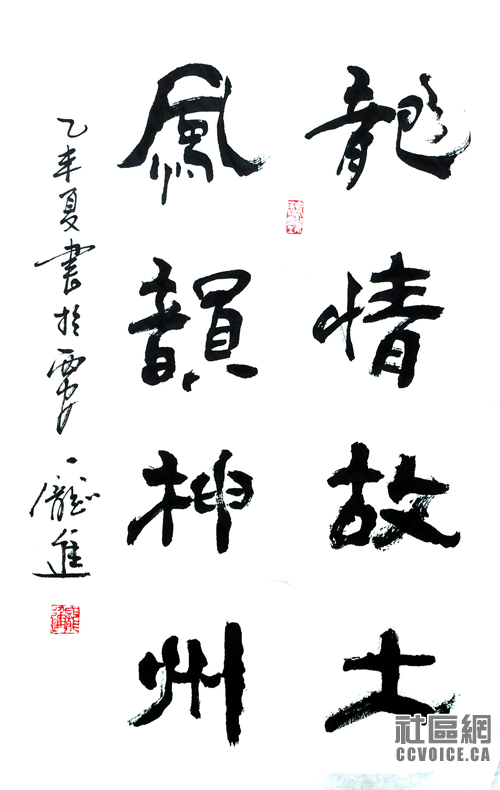 龍情故土
鳳韻神州
乙未夏書於西安 龐進
社區網
CCVOICE.CA